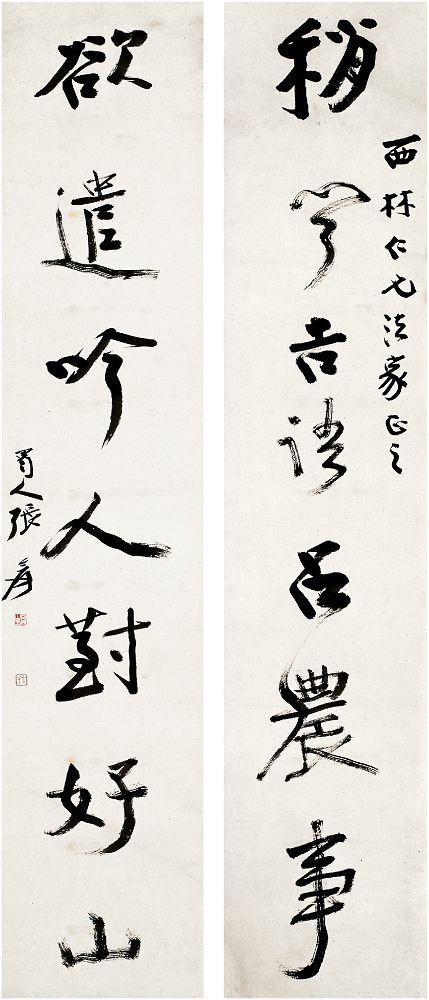 稍 吉語占農事
西林仁兄法家正之
欲遣吟人對好山
蜀人張爰